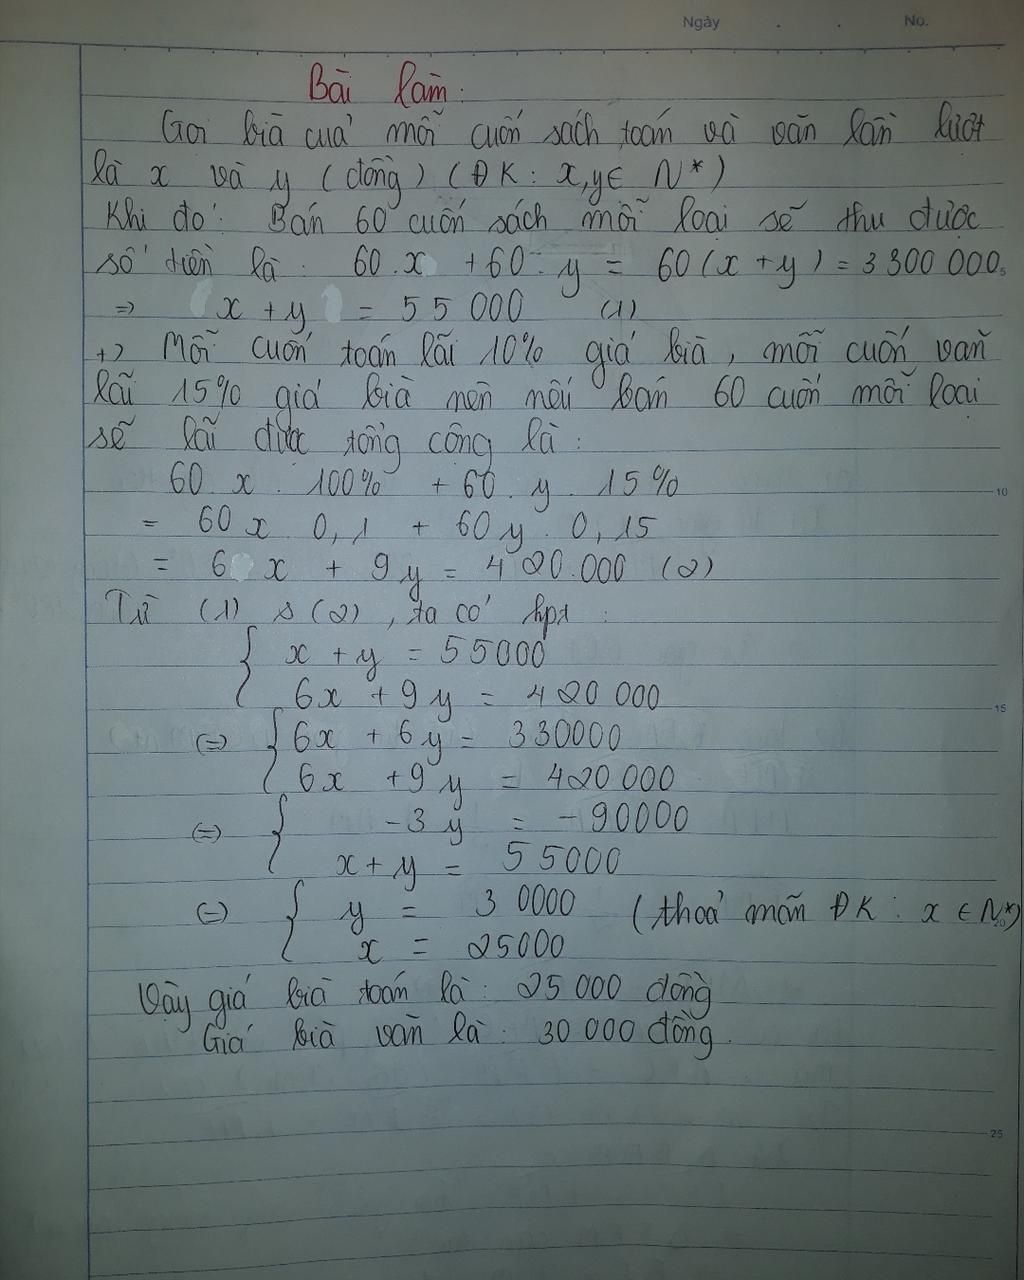 Ngày . . No.
Bài làm:
Gọi bìa cuả mỗi cuốn sách toán và văn lần lượt
là x và y (đồng) (ĐK: x,y∈ N*)
Khi đó: Bán 60 cuốn sách mỗi loại sẽ thu được
số tiền là: 60.x +60.y = 60(x+y) = 3 300 000
=> x + y = 55 000 (1)
+> Mỗi cuốn toán lãi 10% giá bìa, mỗi cuốn văn
lãi 15% giá bìa nên nếu bán 60 cuốn mỗi loại
sẽ lãi được tổng cộng là:
60 x . 100% + 60. y . 15% 10
= 60 x 0,1 + 60y . 0,15
= 6 x + 9y = 420.000 (2)
Từ (1) & (2), ta có hpt:
{ x + y = 55000
6x + 9y = 420 000 15
(=) { 6x + 6y = 330000
6x + 9y = 420 000
(=) { -3y = -90000
x + y = 55000
(=) { y = 30000 (thoả mãn ĐK: x ∈ N*) 20
x = 25000
Vậy giá bìa toán là: 25 000 đồng
Giá bìa văn là: 30 000 đồng.
25